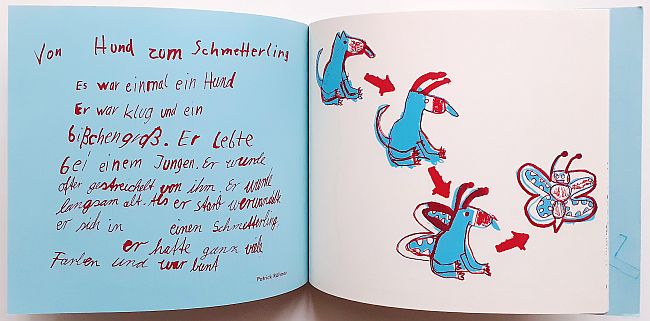 Von Hund zum Schmetterling
Es war einmal ein Hund
Er war klug und ein
bißchengroß. Er lebte
bei einem Jungen. Er wurde
ofter gestreichelt von ihm. Er wurde
langsam alt. Als er starb verwandelte
er sich in einen Schmetterling.
er hatte ganz viele
Farben und war bunt
Patrick